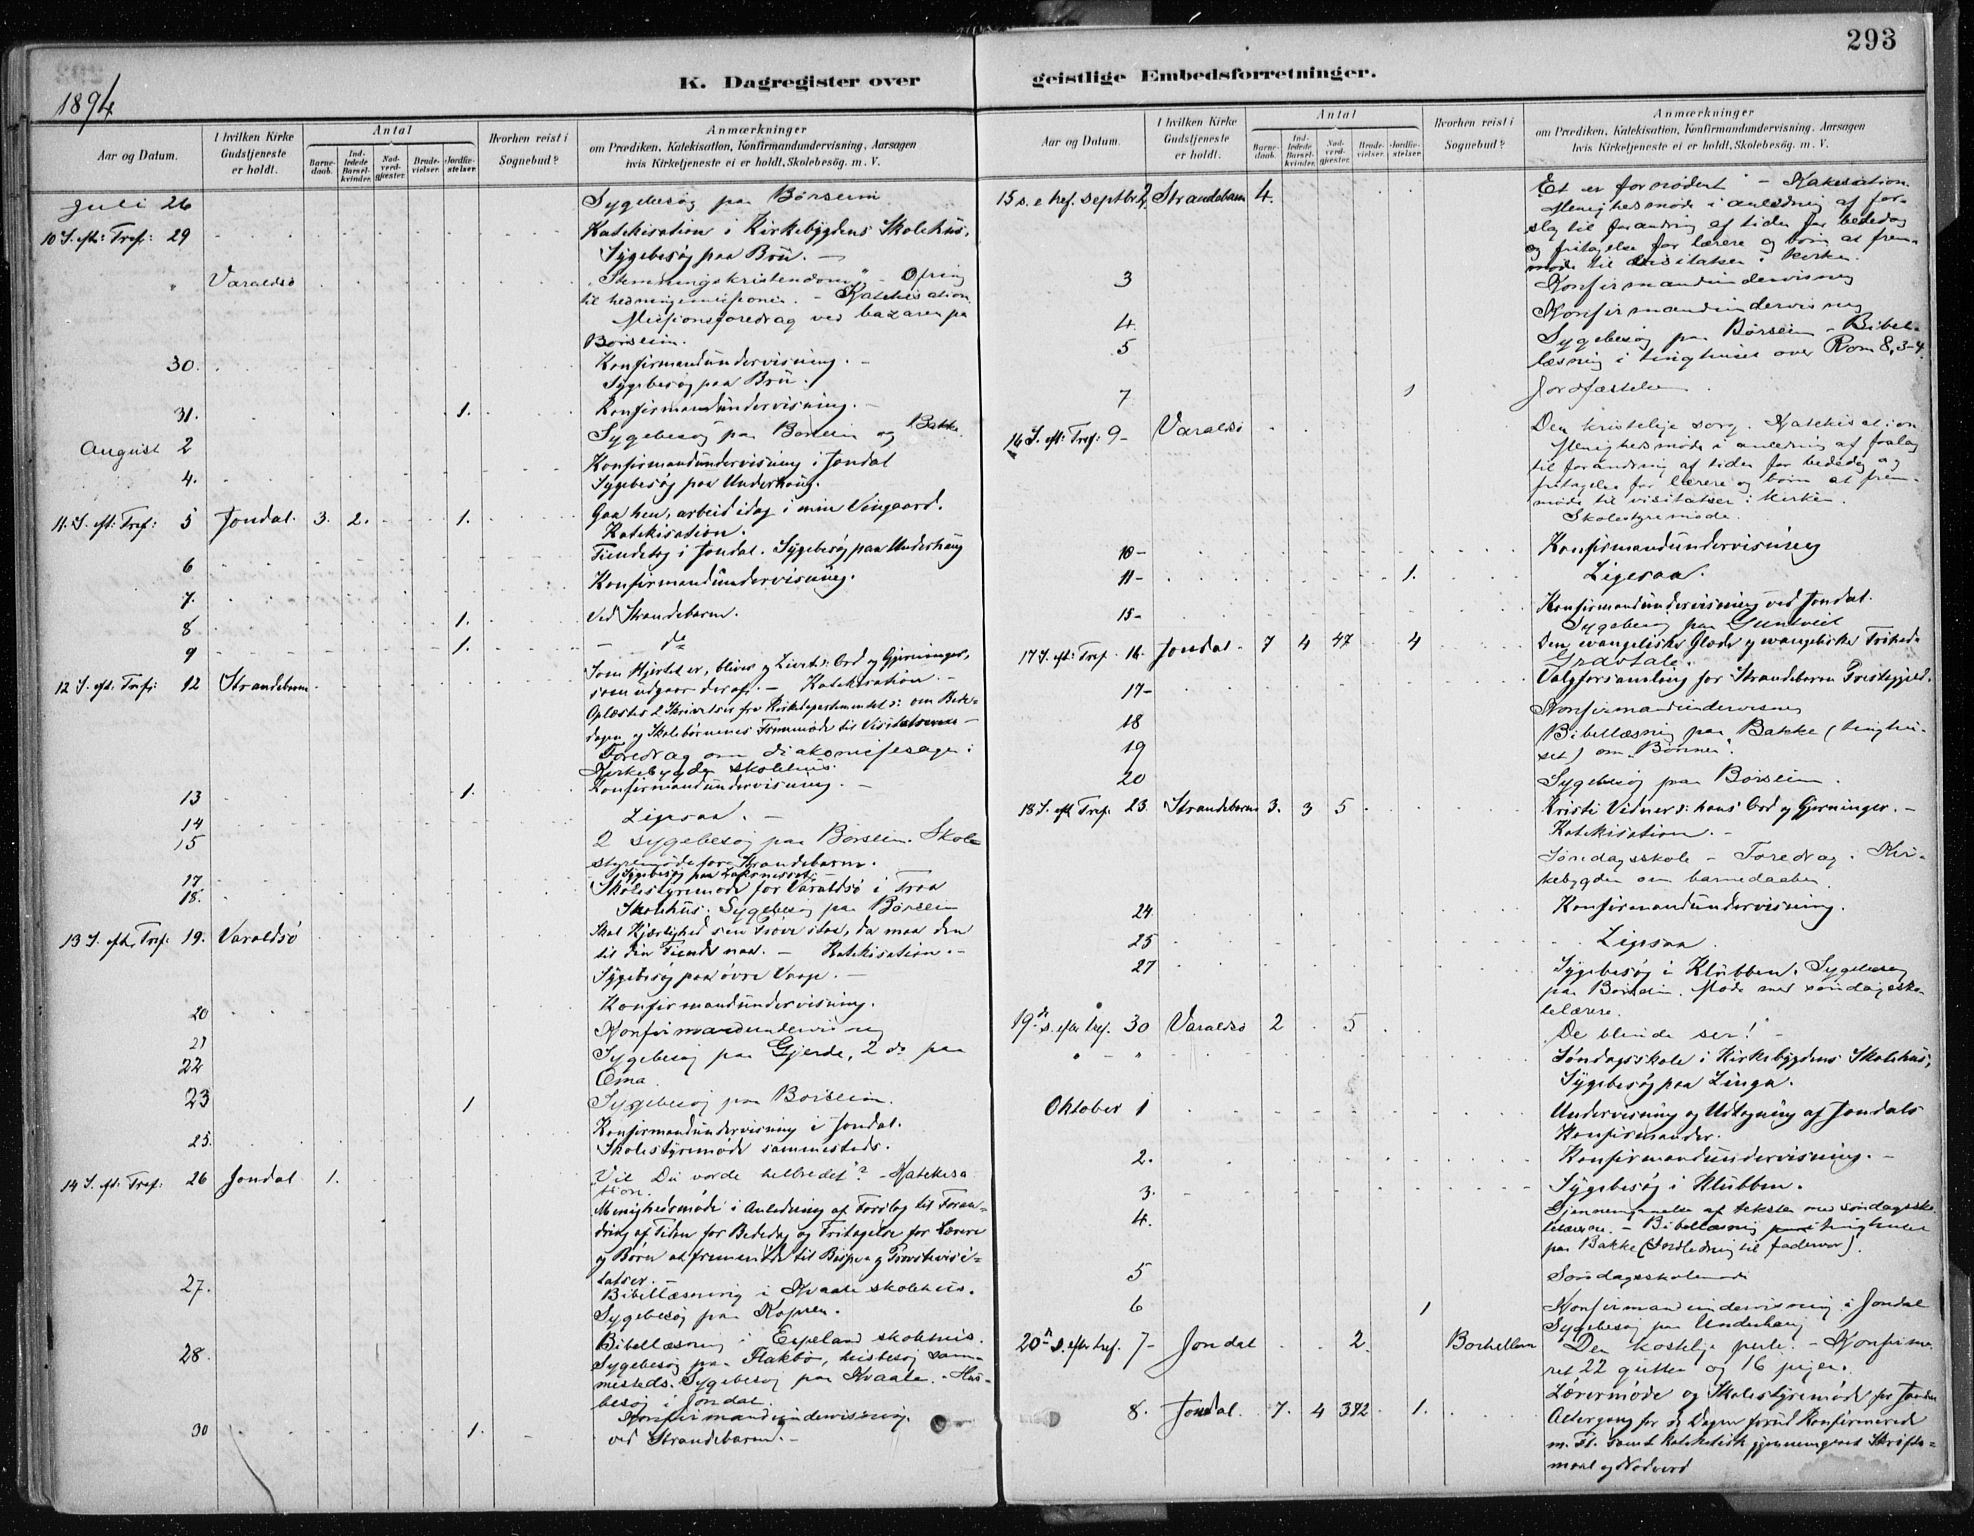 293
K. Dagregister over geistlige Embedsforretninger.
1894
Aar og Datum.
I hvilken Kirke Gudstjeneste er holdt.
Antal
Barnedaab.
Indledede Barselkvinder.
Nadverdgjester.
Brudevielser.
Jordfæstelser.
Hvorhen reist i Sognebud?
Anmærkninger
om Prædiken, Katekisation, Konfirmandundervisning, Aarsagen
hvis Kirketjeneste ei er holdt, Skolebesög. m. V.
Juli 26 Sygebesøg paa Børsheim
10 S. eft: Tref: 29 Katekisation i Kirkebygdens Skolehus.
Sygebesøg paa Bru. —
" Varaldsö "Stemningskristendom" - Ofring
til hedningemissionen. - Katekisation.
Missionsforedrag ved bazaren paa
Børsheim.
30. Konfirmandundervisning. —
Sygebesøg paa Bru.
31. 1. Konfirmandundervisning. —
August 2 Sygebesøg paa Børsheim og Bakke.
4. Konfirmandundervisning i Jondal
Sygebesøg paa Underhaug.
11. S. eft: Tref: 5 Jondal. 3. 2. 1. Gaa hen, arbeid idag i min Vingaard.
Katekisation.
6 Tiendetog i Jondal. Sygebesøg paa Underhaug
7. Konfirmandundervisning.
8 1. Ved Strandebarm.
9 1. — do
12 S. eft. Tref: 12 Strandebarm Som Hjertet er, bliver og Livet: Ord og Gjerninger,
som udgaar deraf. — Katekisation. —
Oplæstes 2 Skrivelser fra Kirkedepartementet: om Bede-
dagen og Skolebørnenes Fremmøde til Visitatserne —
Foredrag om diakonissesagen i
Kirkebygden skolehus.
13 1. Konfirmandundervisning. —
14 Ligesaa. —
15 2 sygebesøg paa Børsheim. Skole
styremøde for Strandebarm.
17 Sygebesøg paa
18. Skolestyremøde for Varaldsö i Traa
Skolehus. Sygebesøg paa Børsheim
13 S. eft. Tref: 19. Varaldsö Skal Kjærlighed sin Prøve staa, da maa den
til din Fiende naa. — Katekisation. —
Sygebesøg paa øvre Vaage. —
20 Konfirmandundervisning.
21 Konfirmandundervisning
22 Sygebesøg paa Gjerde, 2 do paa
Oma.
23 1 Sygebesøg paa Børsheim.
25. Konfirmandundervisning i Jondal.
Skolestyremøde sammesteds.
14 S. eft: Tref: 26 Jondal 1. "Vil Du vorde helbredet"? - Katekisa
tion.
Menighedsmøde i Anledning af Forslag til Foran-
dring af Tiden for Bededag og Fritagelse for Lærere
og Børn at fremmøde til Bispe og Provstevisi-
tatser. —
27. Bibellæsning i Kvaale skolehus.
Sygebesøg paa
28. Bibellæsning i Espeland skolehus.
Sygebesøg paa Flakbø, husbesøg sam-
mesteds. Sygebesøg paa Kvaale. - Hus-
besøg i Jondal.
30 1. Konfirmandundervisning
ved Strandebarm. —
Aar og Datum.
I hvilken Kirke Gudstjeneste er holdt.
Antal
Barnedaab.
Indledede Barselkvinder.
Nadverdgjester.
Brudevielser.
Jordfæstelser.
Hvorhen reist i Sognebud?
Anmærkninger
om Prædiken, Katekisation, Konfirmandundervisning, Aarsagen
hvis Kirketjeneste ei er holdt, Skolebesög. m. V.
15 s. e tref. septbr 2. Strandebarm 4. "Et er fornødent" - Katekisation
Menighedsmøde i anledning af for-
slag til forandring af tiden for bededag
og fritagelse for lærere og børn at frem-
møde til visitatser i kirken.
3 Konfirmandundervisning
4. Konfirmandundervisning
5 Sygebesøg paa Børsheim - Bibel-
læsning i tinghuset over Rom 8,3-4.
7 1 Jordfæstelse
16 S. eft: Tref: 9 — Varaldsö Den kristelige sorg. Katekisation
Menighedsmøde i anledning af forslag
til forandring af tiden for bededag og
fritagelse for lærere og børn at frem-
møde til visitatser i kirken.
Skolestyremøde.
10 — Konfirmandundervisning
11 — 1. Ligesaa.
15 — Konfirmandundervisning ved Jondal.
Sygebesøg paa
17 S. eft: Tref. 16. Jondal. 7 4 47 4 Den evangeliske Glæde og evangeliske Frihed.
Gravtale.
17 — Valgforsamling for Strandebarm Prestegjeld.
18 Konfirmandundervisning
19 Bibellæsning paa Bakke (tinghu-
set) om "Bønnen".
20 Sygebesøg paa Børsheim.
18 S. eft Tref. 23. Strandebarm 3. 3 5 Kristi Vidner: hans Ord og Gjerninger. —
Katekisation. —
Søndagsskole - Foredrag i Kir-
kebygden om barnedaaben.
24 Konfirmandundervisning.
25 Ligesaa.
27 Sygebesøg i Klubben. Sygebesøg
paa Børsheim. Møde med søndagssko-
lelærere.
19de s. efter tref. 30 Varaldsö 2 5 "De blinde ser!" —
" — " Søndagsskole i Kirkebygdens Skolehus,
Sygebesøg paa Linga.
Oktober 1 Undervisning og Udtagning af Jondals
Konfirmander.
2. Konfirmandundervisning. —
3. Sygebesøg i Klubben.
4. Gjennemgaaelse af teksten med søndagssko-
lelærere. - Bibellæsning i tinghuset
paa Bakke (Indledning til fadervor).
5 Søndagsskolemøde
6 1 Konfirmandundervisning i Jondal
Sygebesøg paa Underhaug
20de s. efter tref. 7 — Jondal 2. Den kostelige perle. - Konfirme-
ret 22 gutter og 16 piger.
8. Jondal. 7. 4 392 1. Lærermøde og Skolestyremøde for Jondal
Altergang for de Dagen forud Konfirmerede
m. Fl. samt kateketisk gjennemgaaet Skrifte-
maal og Nadverd